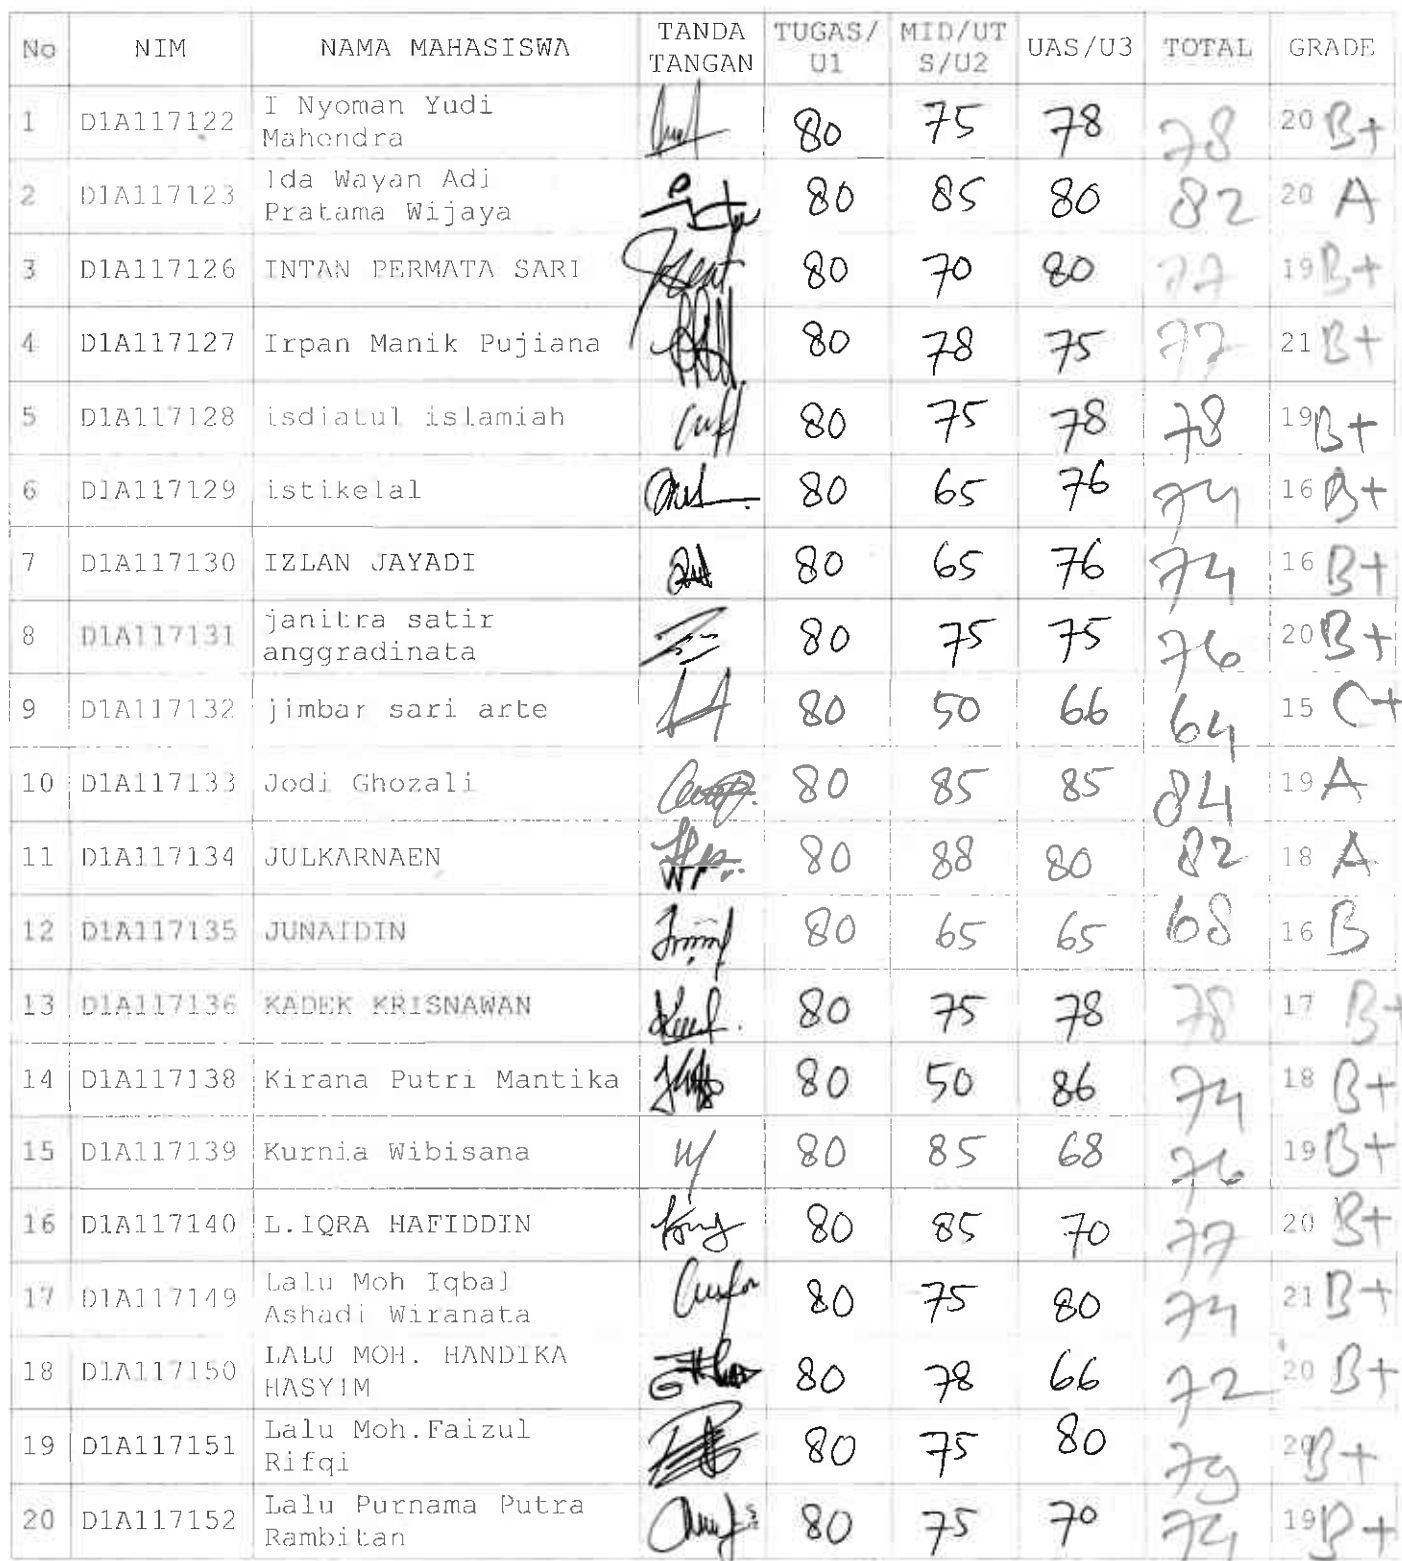 No NIM NAMA MAHASISWA TANDA TANGAN TUGAS/U1 MID/UTS/U2 UAS/U3 TOTAL GRADE
1 D1A117122 I Nyoman Yudi Mahendra 80 75 78 78 20 B+
2 D1A117123 Ida Wayan Adi Pratama Wijaya 80 85 80 82 20 A
3 D1A117126 INTAN PERMATA SARI 80 70 80 77 19 B+
4 D1A117127 Irpan Manik Pujiana 80 78 75 77 21 B+
5 D1A117128 isdiatul islamiah 80 75 78 78 19 B+
6 D1A117129 istikelal 80 65 76 74 16 B+
7 D1A117130 IZLAN JAYADI 80 65 76 74 16 B+
8 D1A117131 janitra satir anggradinata 80 75 75 76 20 B+
9 D1A117132 jimbar sari arte 80 50 66 64 15 C+
10 D1A117133 Jodi Ghozali 80 85 85 84 19 A
11 D1A117134 JULKARNAEN 80 88 80 82 18 A
12 D1A117135 JUNAIDIN 80 65 65 68 16 B
13 D1A117136 KADEK KRISNAWAN 80 75 78 78 17 B+
14 D1A117138 Kirana Putri Mantika 80 50 86 74 18 B+
15 D1A117139 Kurnia Wibisana 80 85 68 76 19 B+
16 D1A117140 L.IQRA HAFIDDIN 80 85 70 77 20 B+
17 D1A117149 Lalu Moh Iqbal Ashadi Wiranata 80 75 80 79 21 B+
18 D1A117150 LALU MOH. HANDIKA HASYIM 80 78 66 72 20 B+
19 D1A117151 Lalu Moh.Faizul Rifqi 80 75 80 79 20 B+
20 D1A117152 Lalu Purnama Putra Rambitan 80 75 70 74 19 B+